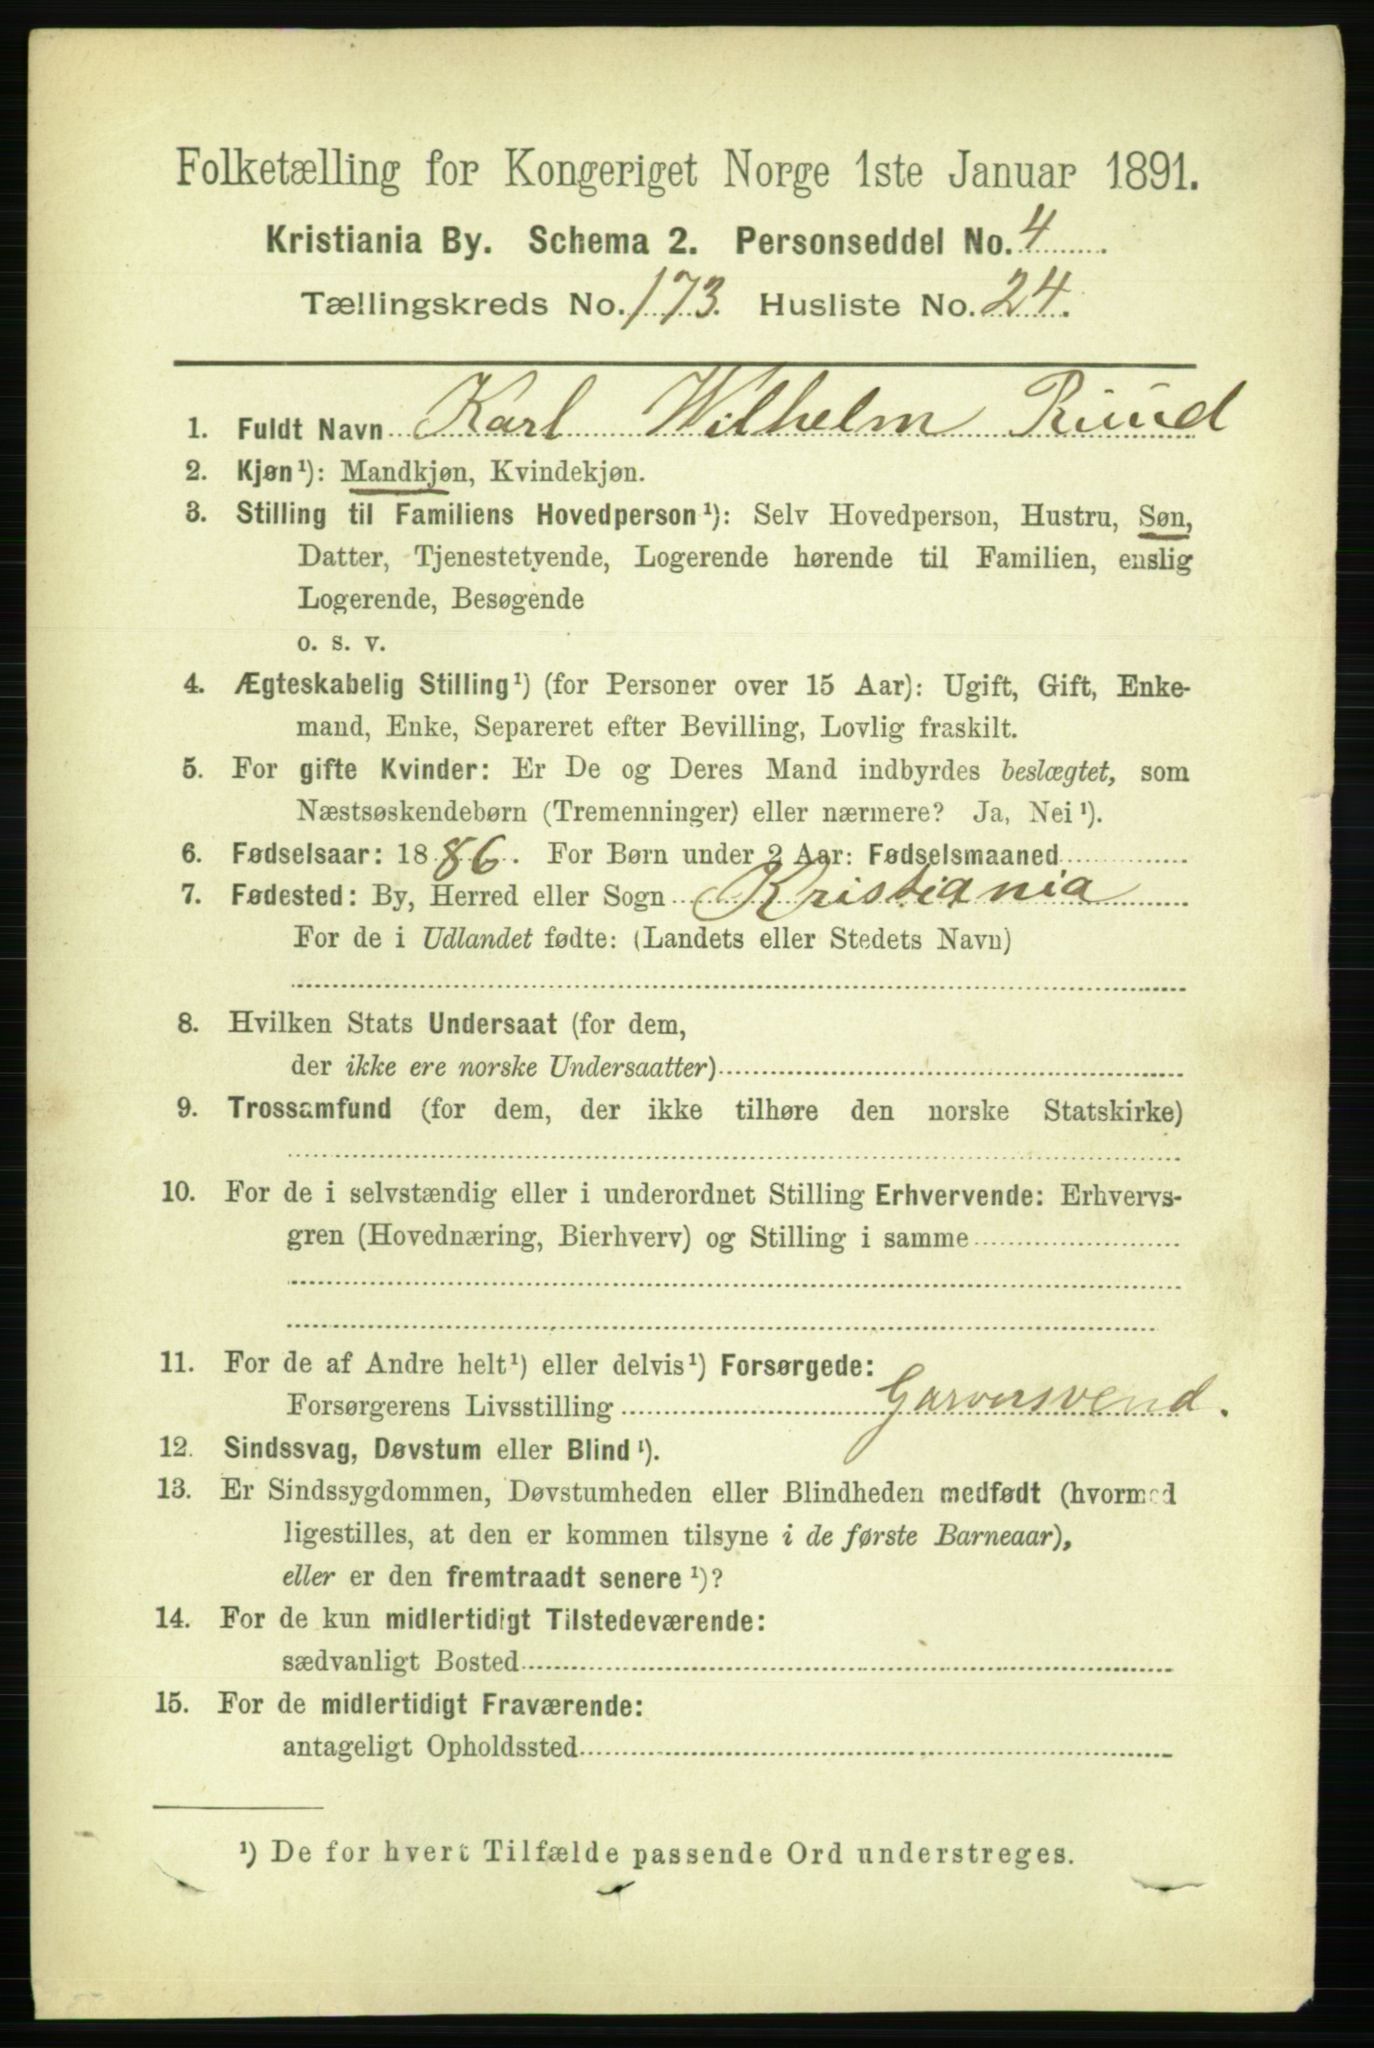 Folketælling for Kongeriget Norge 1ste Januar 1891.
Kristiania By. Schema 2. Personseddel No. 4
Tællingskreds No. 173. Husliste No. 24.
1. Fuldt Navn Karl Wilhelm Ruud
2. Kjøn¹): Mandkjøn, Kvindekjøn.
3. Stilling til Familiens Hovedperson¹): Selv Hovedperson, Hustru, Søn,
Datter, Tjenestetyende, Logerende hørende til Familien, enslig
Logerende, Besøgende
o. s. v.
4. Ægteskabelig Stilling¹) (for Personer over 15 Aar): Ugift, Gift, Enke-
mand, Enke, Separeret efter Bevilling, Lovlig fraskilt.
5. For gifte Kvinder: Er De og Deres Mand indbyrdes beslægtet, som
Næstsøskendebørn (Tremenninger) eller nærmere? Ja, Nei¹).
6. Fødselsaar: 1886. For Børn under 2 Aar: Fødselsmaaned
7. Fødested: By, Herred eller Sogn Kristiania
For de i Udlandet fødte: (Landets eller Stedets Navn)
8. Hvilken Stats Undersaat (for dem,
der ikke ere norske Undersaatter)
9. Trossamfund (for dem, der ikke tilhøre den norske Statskirke)
10. For de i selvstændig eller i underordnet Stilling Erhvervende: Erhvervs-
gren (Hovednæring, Bierhverv) og Stilling i samme
11. For de af Andre helt¹) eller delvis¹) Forsørgede:
Forsørgerens Livsstilling Garversvend.
12. Sindssvag, Døvstum eller Blind¹).
13. Er Sindssygdommen, Døvstumheden eller Blindheden medfødt (hvormed
ligestilles, at den er kommen tilsyne i de første Barneaar),
eller er den fremtraadt senere¹)?
14. For de kun midlertidigt Tilstedeværende:
sædvanligt Bosted
15. For de midlertidigt Fraværende:
antageligt Opholdssted
¹) De for hvert Tilfælde passende Ord understreges.